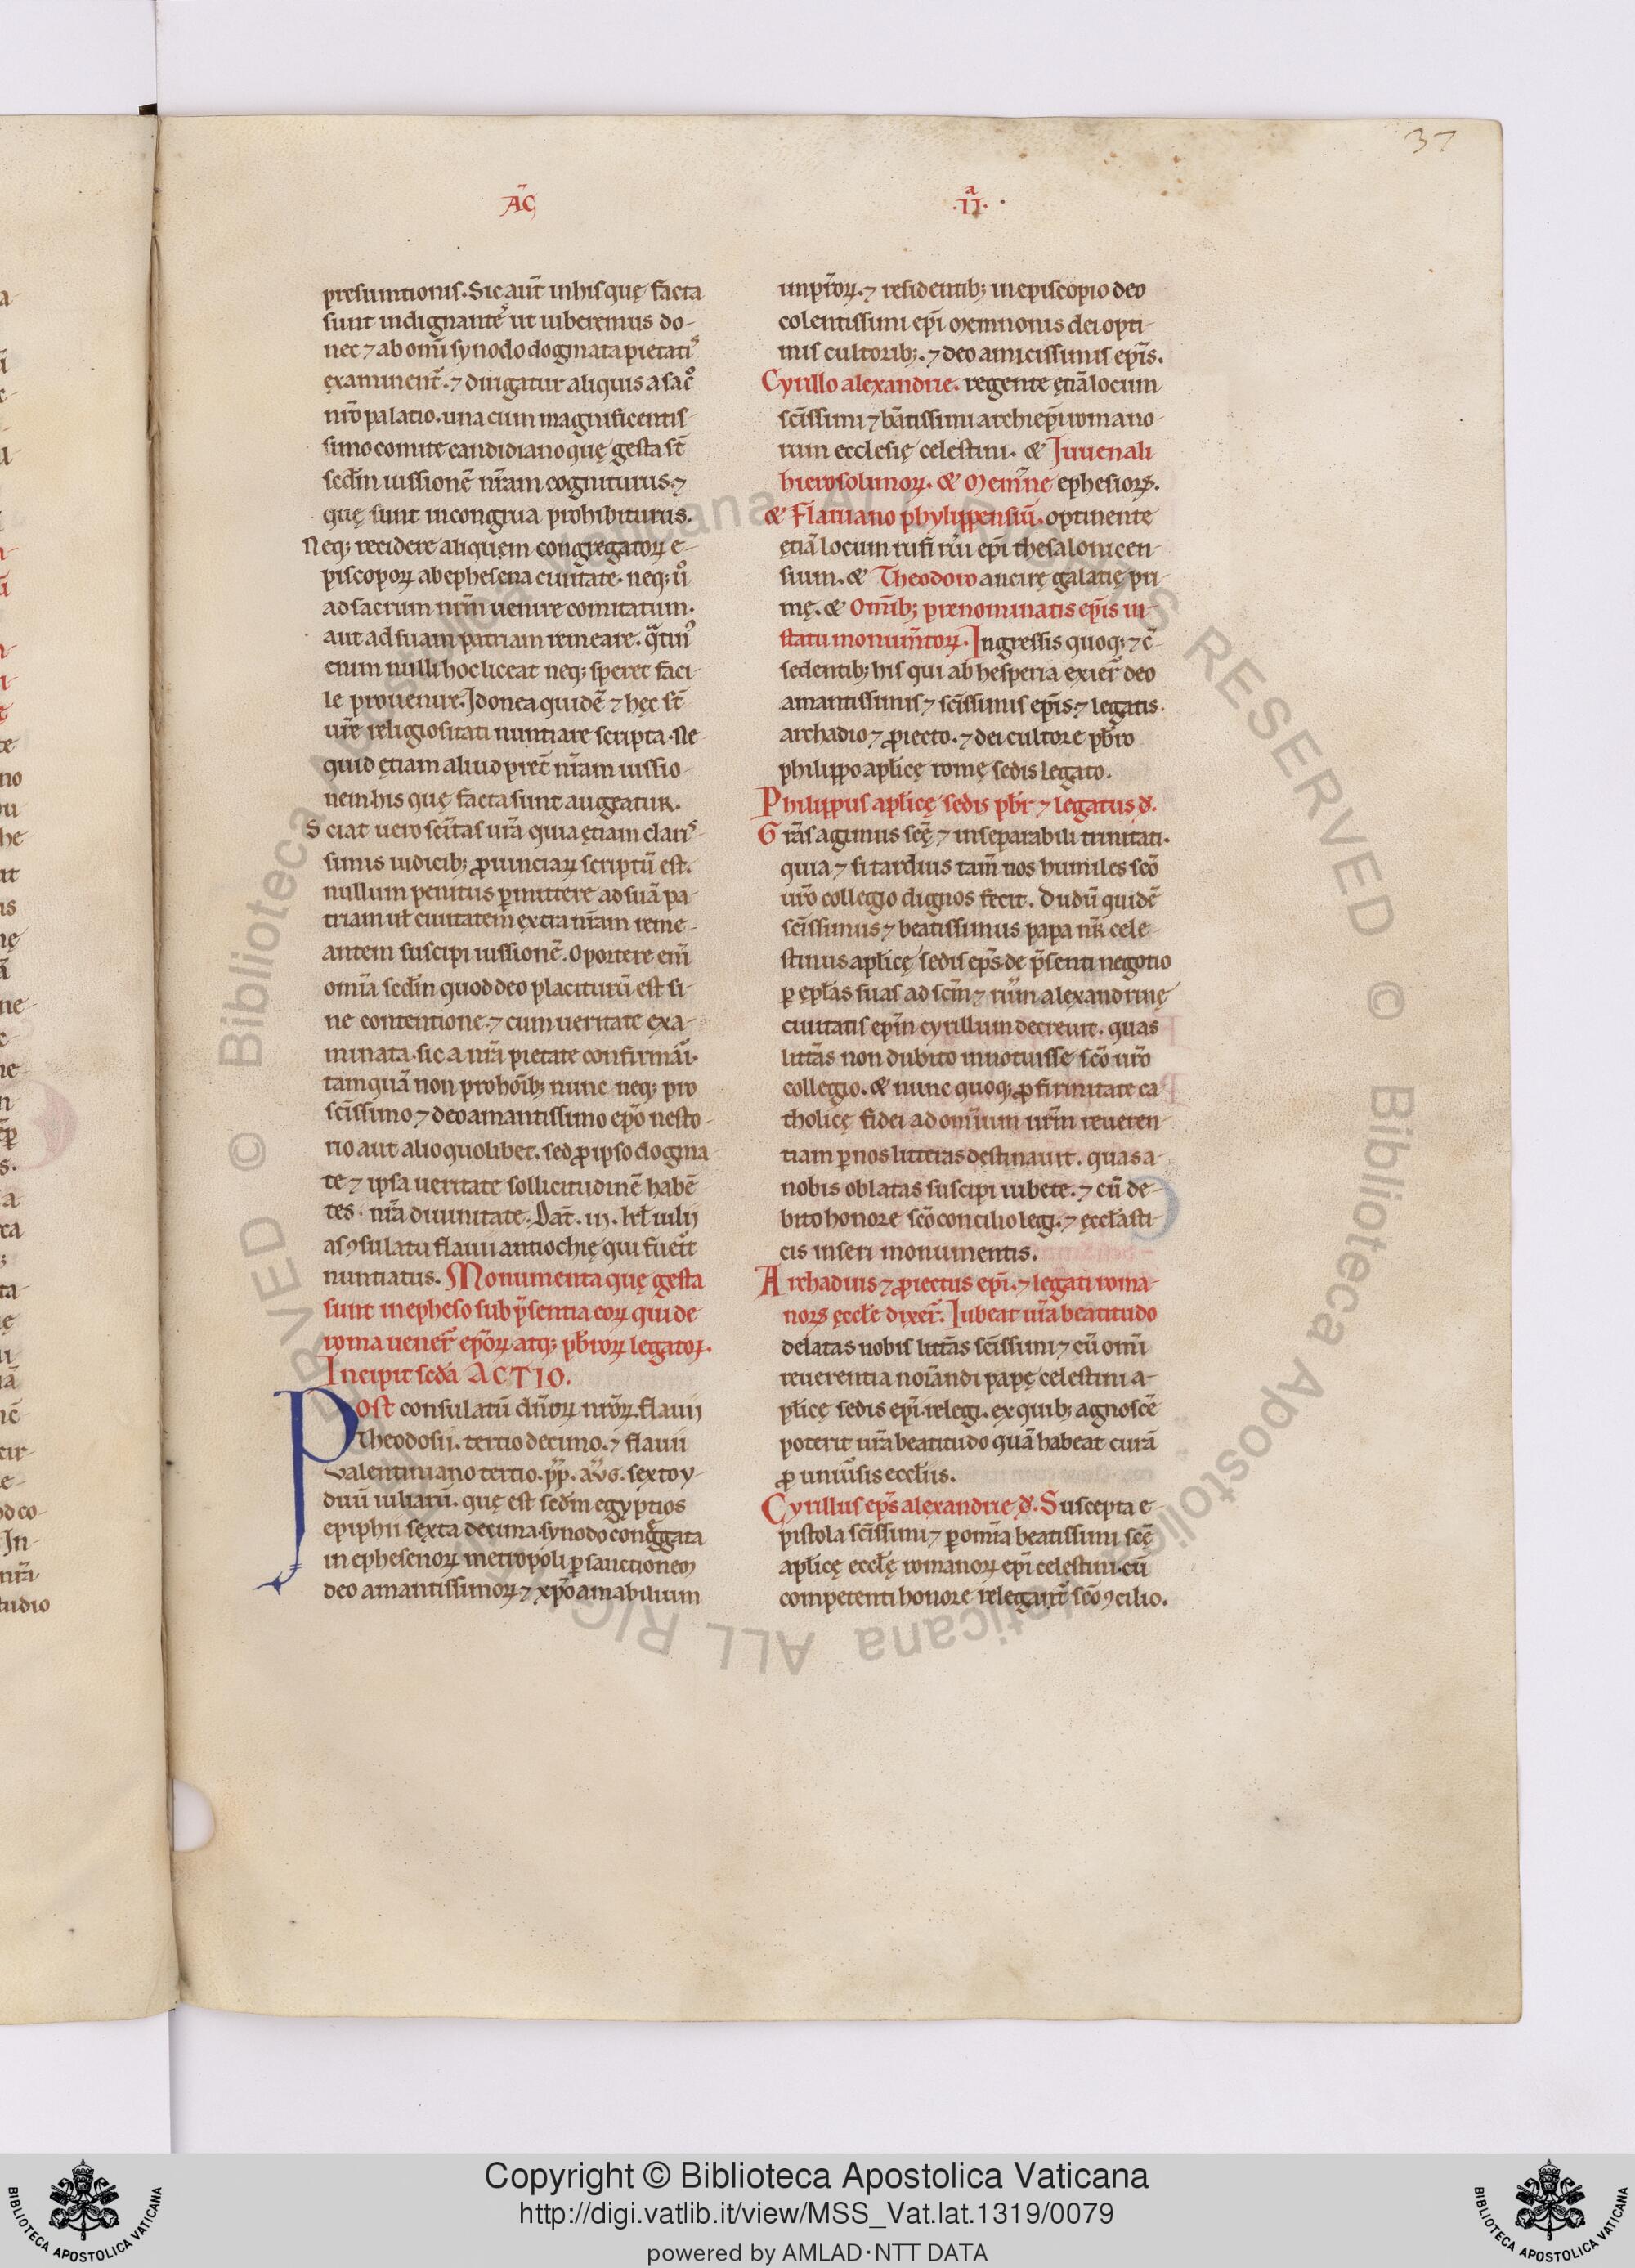 37
AC̄
·II·ª
presumtionis. Sic aut̄ in his quę facta
sunt indignantes ut iuberemus do-
nec ⁊ ab om̄i synodo dogmata pietatis
ęxaminent᷑. ⁊ dirigatur aliquis a sac̄o
nr̄o palatio. una cum magnificentis-
simo comite candidiano quę gesta st̄
scd̄m iussionē nr̄am cogniturus. ⁊
quę sunt incongrua prohibiturus.
Neq; recidere aliquem congregatoꝝ e-
piscopoꝝ ab ephesena ciuitate. neq; ůo
ad sacrum nrm̄ uenire comitatum.
aut ad suam patriam remeare.
enim nulli hoc liceat neq; speret faci-
le prouenire. Idonea quidē ⁊ hęc st̄
ur̄e religiositati nuntiare scripta. Ne
quid ętiam aliud pret̄ nr̄am iussio-
nem his quę facta sunt augeatur.
Sciat uero scītas ur̄a quia ętiam claris-
simis iudicib; ꝓuinciaꝝ scriptū est.
nullum penitus ꝑmittere ad suā pa-
triam uł ciuitatem ęxtra nr̄am reme-
antem suscipi iussionē. Oportere enī
omīa scd̄m quod deo placiturū est si-
ne contentione. ⁊ cum ueritate exa-
minata. sic a nr̄a pietate confirmāi.
tamquā non pro hōib; nunc neq; pro
scīssimo ⁊ deo amantissimo ep̄o nesto-
rio aut alio quolibet. sed ꝓ ipso dogma-
te ⁊ ipsa ueritate sollicitudinē habē-
tes. nr̄a diuinitate. Dat̄. iii. kł iulij
a ꝯsulatu flauii antiochię qui fuerit
nuntiatus. Monumenta quę gesta
sunt in epheso sub p̄sentia eoꝝ qui de
roma uener̄ ep̄oꝝ atq; pb̄roꝝ legatoꝝ.
Incipit scd̄a ACTIO.
Post consulatū dn̄oꝝ nr̄oꝝ. flauij
Theodosii. tertio decimo. ⁊ flauii
Valentiniano tertio. pp̄. aug. sexto y-
duū iuliarū. quę est scd̄m egyptios
epiphii sęxta decima. synodo congͣgata
in ephesenoꝝ metropoli ꝑ sanctionem
deo amantissimoꝝ ⁊ xp̄o amabilium
imp̄roꝝ. ⁊ residentib; in episcopio deo
colentissimi ep̄i memnonis dei opti-
mis cultorib;. ⁊ deo amicissimis ep̄is.
Cyrillo alexandrie. regente ętiā locum
scīssimi ⁊ bātissimi archiep̄i romano-
rum ecclesię celestini. & Iuuenali
hierosolimoꝝ. & Memn̄ne ephesioꝝ.
& Flauiano phylippensiū. optinente
ętiā locum rufi ru̇i ep̄i thesalonicen-
sium. & Theodoro ancirę galatię pri-
mę. & Omīb; prenominatis ep̄is in-
statu monum̄toꝝ. Ingressis quoq; ⁊ c̄-
sedentib; his qui ab hesperia exier̄ deo
amantissimis ⁊ scīssimis ep̄is. ⁊ legatis.
archadio ⁊ ꝓiecto. ⁊ dei cultore pb̄ro
philippo aplicę romę sedis legato.
Philippus aplicę sedis pb̄r ⁊ legatus đ.
Gr̄as agimus scę̄ ⁊ inseparabili trinitati.
quia ⁊ si tardius tam̄ nos humiles scō
ur̄o collegio dignos fecit. Dudū quidē
scīssimus ⁊ beatissimus papa nr̄ cele-
stinus aplicę sedis ep̄s de p̄senti negotio
ꝑ epl̄as suas ad scm̄ ⁊ ru̇m alexandrinę
ciuitatis ep̄m cyrillum decreuit. quas
littās non dubito innotuisse scō ur̄o
collegio. & nunc quoq; ꝓ firmitate ca-
tholicę fidei ad omnium ur̄m reueren-
tiam ꝑ nos litteras destinauit. quas a-
nobis oblatas suscipi iubete. ⁊ cū de-
bito honore scō concilio legi. ⁊ ęccłasti-
cis inseri monumentis.
Archadius ⁊ ꝓiectus ep̄i. ⁊ legati roma-
noꝝ ęccłe dixer̄. Iubeat ur̄a beatitudo
delatas nobis littās scīssimi ⁊ cū omī
reuerentia noīandi papę celestini a-
plicę sedis ep̄i. relegi. ex quib; agnoscē
poterit ur̄a beatitudo quā habeat curā
ꝓ uniu᷑sis eccłiis.
Cyrillus ep̄s alexandrie đ. Suscepta e-
pistola scīssimi ⁊ ꝑ omīa beatissimi scę̄
aplicę eccłę romanoꝝ ep̄i celestini. cū
competenti honore relegant᷑ scō ꝯcilio.
© Biblioteca Apostolica Vaticana ALL RIGHTS RESERVED © Biblioteca Apostolica Vaticana ALL RIGHTS RESERVED
Copyright © Biblioteca Apostolica Vaticana
http://digi.vatlib.it/view/MSS_Vat.lat.1319/0079
powered by AMLAD·NTT DATA
BIBLIOTECA APOSTOLICA VATICANA
BIBLIOTECA APOSTOLICA VATICANA